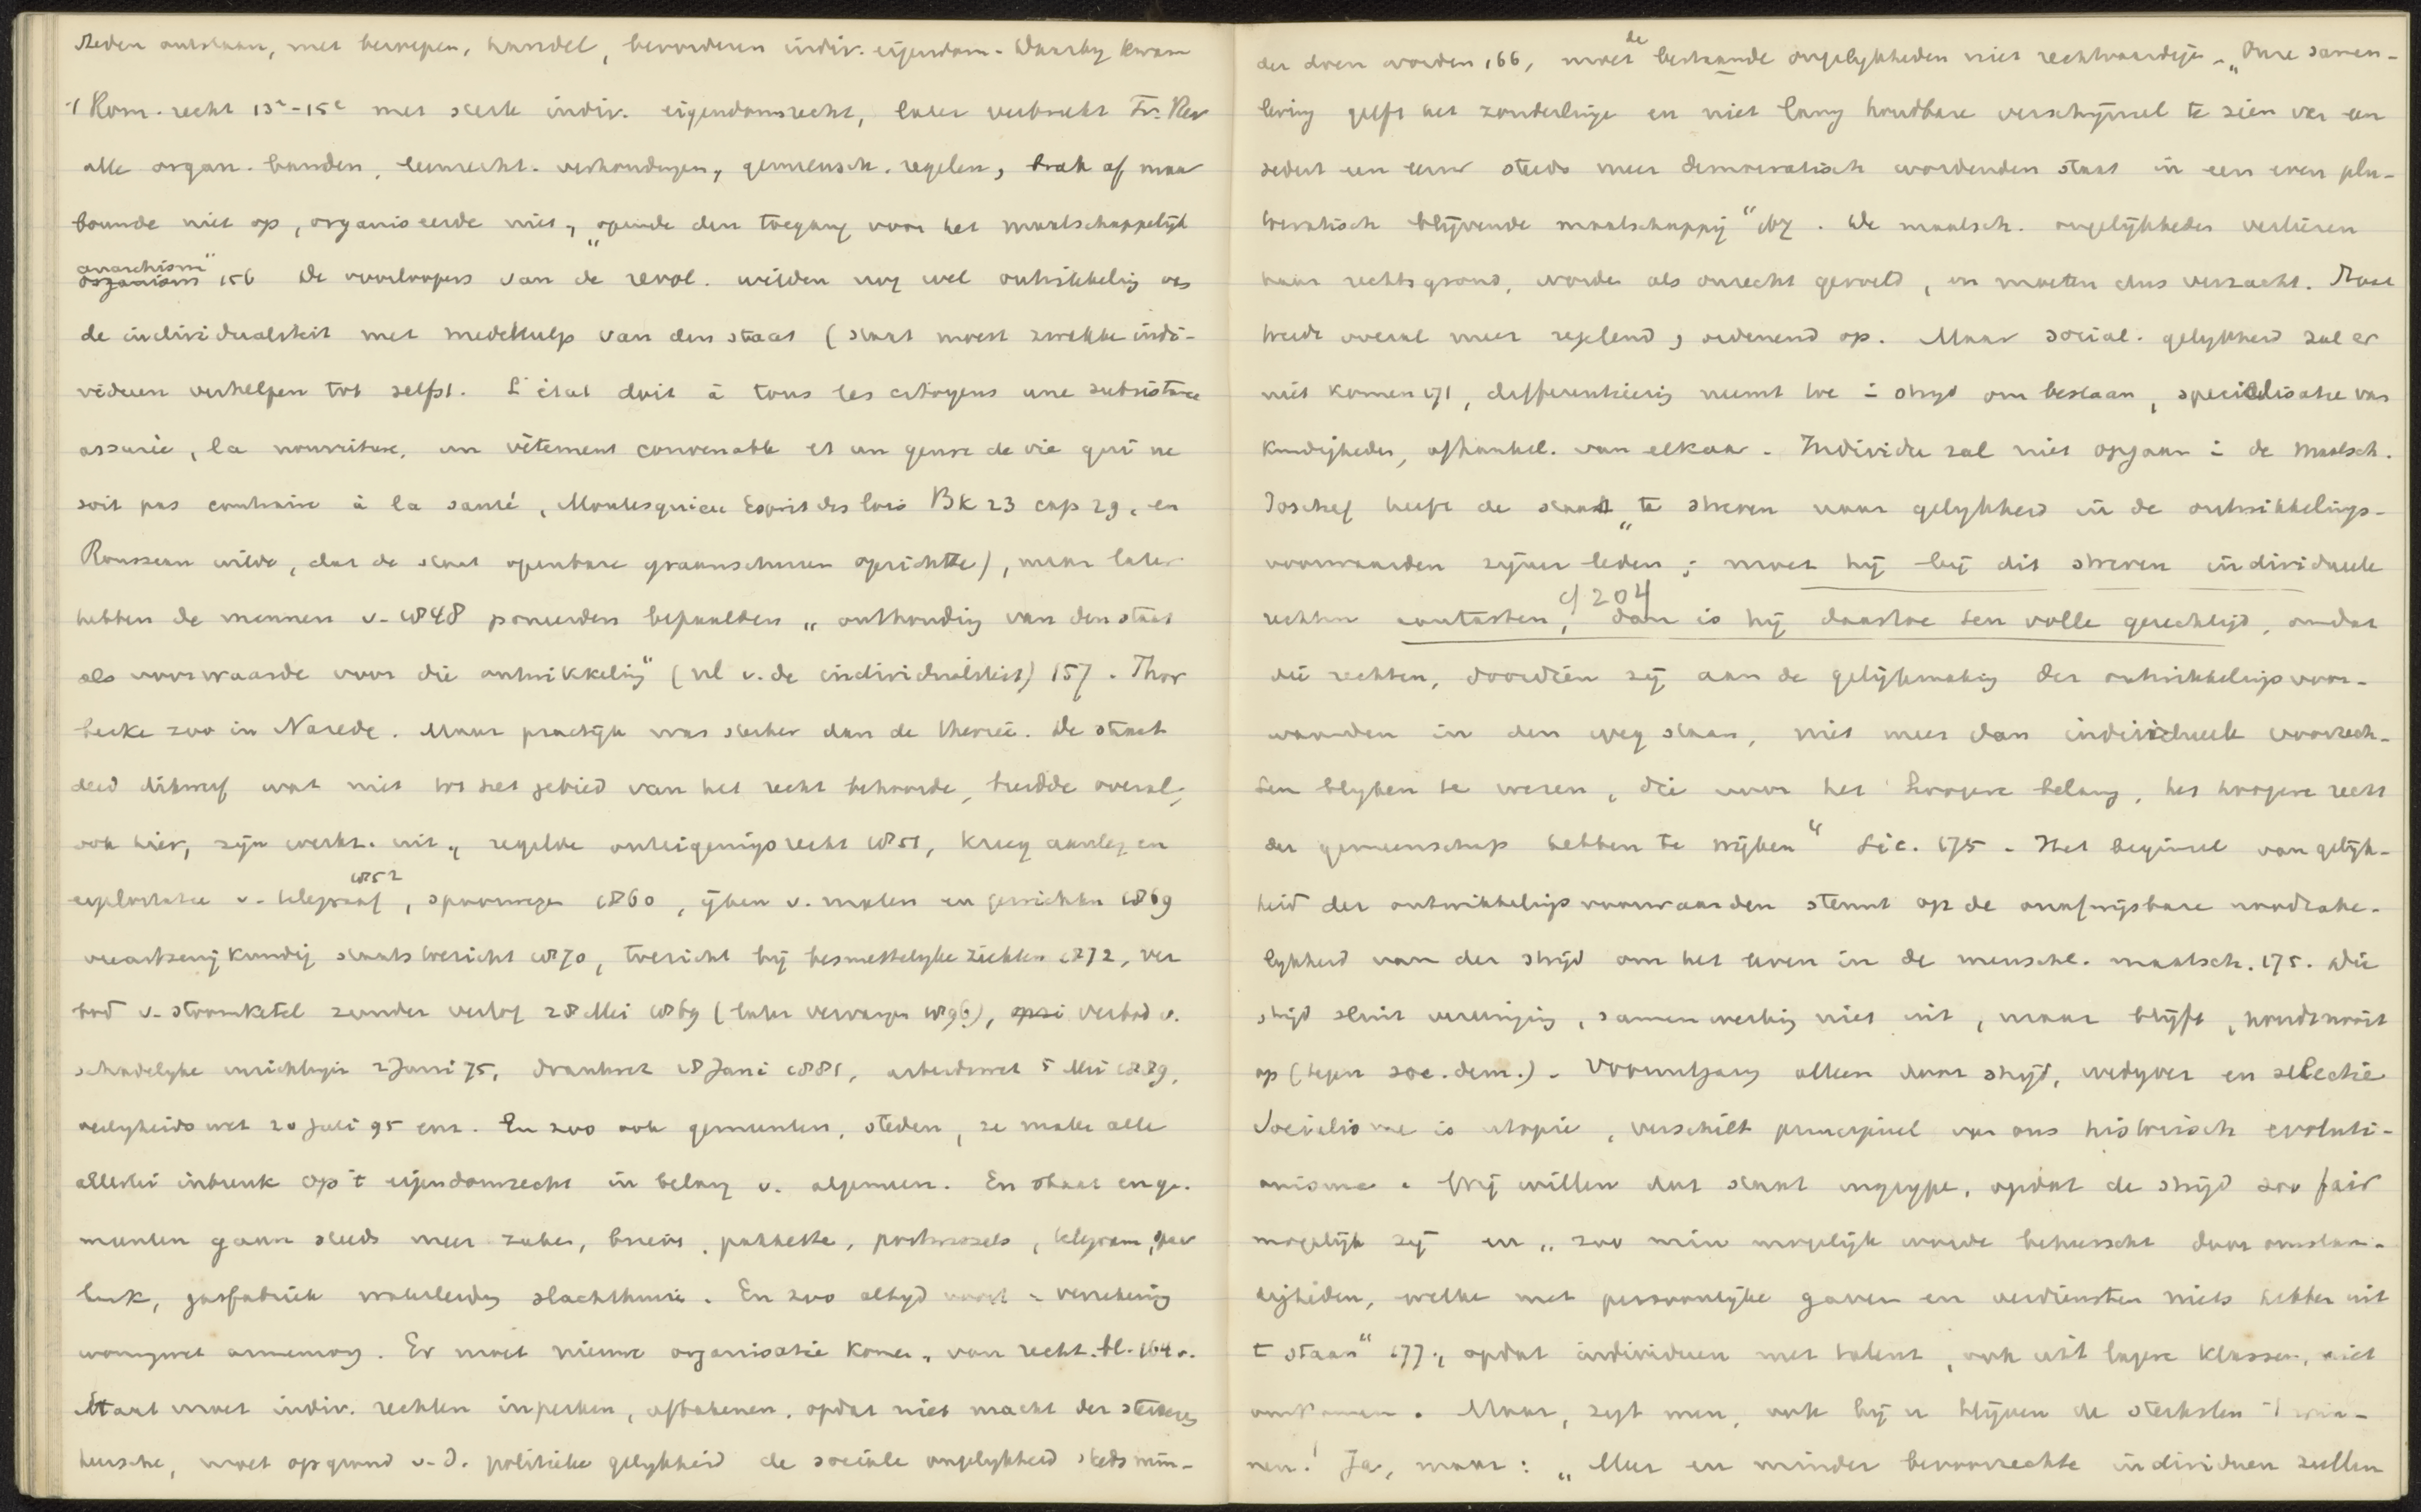 steden ontstaan, met beroepen, handel, bevorderen indiv. eigendom. Daarby kwam
't Rom. recht 13e-15e met sterk indiv. eigendomsrecht, later verbrak Fr. Rev
alle organ. banden, leenrecht. verhoudingen, gemeensch. regelen, brak af maar
bouwde niet op, organiseerde niet, "opende den toegang voor het maatschappelijk
anarchisme" 156 De voorloopers van de revol. wilden nog wel ontwikkeling van
de individualiteit met medehulp van den staat (staat moest zwakke indi-
viduen verhelpen tot zelfst. L'état doit à tous les citoyens une subsistance
assurée, la nourriture, un vêtement convenable et un genre de vie qui ne
soit pas contraire à la santé, Montesquieu Esprit des lois Bk 23 cap 29, en
Rousseau wilde, dat de staat openbare graanschuren oprichtte), maar later
hebben de mannen v. 1848 bepaalden "onthouding van den staat
als voorwaarde voor die ontwikkeling" (nl v. de individualiteit) 157. Thor
becke zoo in Narede. Maar practijk was sterker dan de theorie. De staat
deed dikwijf wat niet tot het gebied van het recht behoorde, breidde overal,
ook hier, zijn werkz. uit, regelde onteigeningsrecht 1851, kreeg aanleg en
exploitatie v. telegraaf 1852, spoorwegen 1860, ijken v. maten en gewichten 1869
veeartsenijkundig staatstoezicht 1870, toezicht bij besmettelyke ziekten 1872, ver
bod v. stoomketel zonder verlof 28 Mei 1869 (later vervangen 1896), verbod v.
schadelyke inrichtingen 2 Juni 75, drankwet 28 Juni 1881, arbeidswet 5 Mei 1889,
veiligheidswet 20 Juli 95 enz. En zoo ook gemeenten, steden, ze maken alle
allerlei inbreuk op 't eigendomsrecht in belang v. algemeen. En staat en ge-
meenten gaan steeds meer zaken, brieven, pakketten, postwissels, telegram, spaar
bank, gasfabriek waterleiding slachthuis. En zoo altyd voort verzekering
woningwet armenzorg. Er moet nieuwe organisatie komen, van recht. bl. 164 v.
Staat moet indiv. rechten inperken, afbakenen, opdat niet macht der sterkeren
heersche, moet op grond v. d. politieke gelykheid de sociale ongelykheid steeds min-
der doen worden 166, moet de bestaande ongelykheden niet rechtvaardigen. "Onze samen-
leving geeft het zonderlinge en niet lang houdbare verschijnsel te zien van een
sedert een eeuw steeds meer democratisch wordenden staat in een even plu-
tocratisch blijvende maatschappij" 167. De maatsch. ongelijkheden verliezen
haar rechtsgrond, worden als onrecht gevoeld, en moeten dus verzacht. Staat
trede overal meer regelend, ordenend op. Maar social. gelykheid zal er
niet komen 171, differentieering neemt toe i strijd om bestaan, specialisatie van
kundigheden, afhankel. van elkaar. Individu zal niet opgaan i de maatsch.
Toch heeft de staat "te streven naar gelykheid in de ontwikkelings-
voorwaarden zijner leden; moet hij bij dit streven individueele
cf 204
rechten aantasten, dan is hij daartoe ten volle gerechtigd, omdat
die rechten, doordien zij aan de gelijkmaking der ontwikkelingsvoor-
waarden in den weg staan, niet meer dan individueele voorrech-
ten blyken te wezen, die voor het hoogere belang, het hoogere recht
der gemeenschap hebben te wijken" sic. 175. Het beginsel van gelijk-
heid der ontwikkelingsvoorwaarden steunt op de onafwijsbare noodzake-
lykheid van den strijd om het leven in de menschel. maatsch. 175. Die
strijd sluit vereeniging, samenwerking niet uit, maar blijft, houdt nooit
op (tegen soc. dem.). Vooruitgang alleen door strijd, wedyver en selectie
Socialisme is utopie, verschilt principieel van ons historisch evoluti-
onisme. Wij willen dat staat ingrype, opdat de strijd zoo fair
mogelijk zij en "zoo min mogelijk worde beheerscht door omstan-
digheden, welke met persoonlyke gaven en verdiensten niets hebben uit
t staan" 177, opdat individuen met talent, ook uit lagere klassen, niet
omkomen. Maar, zegt men, ook bij u blijven de sterksten 't win-
nen! Ja, maar: "Meer en minder bevoorrechte individuen zullen